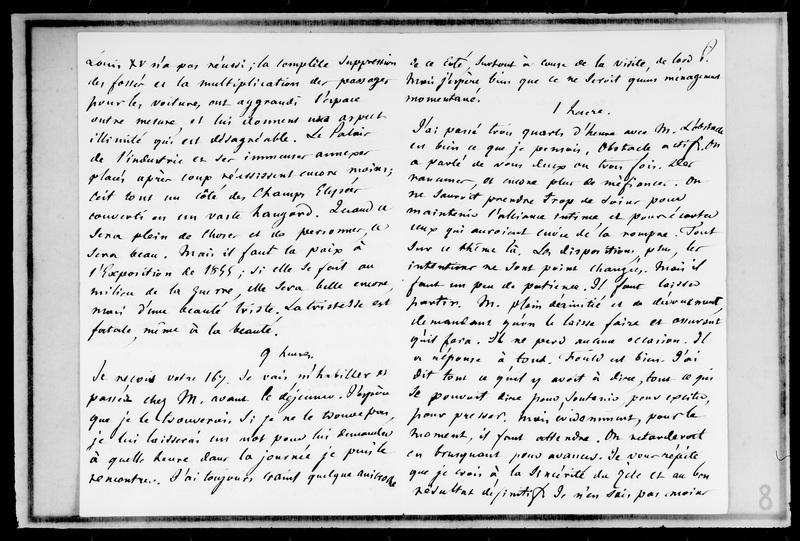 Louis XV n'a pas réussi ; la complète suppression
des fossés et la multiplication des passages
pour les voitures, ont aggrandi l'espace
outre mesure et lui donnent un aspect
illimité qui est désagréable. Le Palais
de l'industrie et ses immenses annexes
placés après coup réussissent encore moins ;
c'est tout un côté des Champs Elysées
converti en un vaste hangard. Quand ce
sera plein de choses et de personnes, ce
sera beau. Mais il faut la paix à
l'Exposition de 1855 ; si elle se fait au
milieu de la guerre, elle sera belle encore,
mais d'une beauté triste. La tristesse est
fatale, même à la beauté.
9 heures.
Je reçois votre 167. Je vais m'habiller et
passer chez M. avant le déjeuner. J'espère
que je le trouverai. Si je ne le trouve pas,
je lui laisserai un mot pour lui demander
à quelle heure dans la journée je puis le
rencontrer. J'ai toujours craint quelque
de ce côté, surtout à cause de la visite, de lord P.
Mais j'espère bien que ce ne seroit qu'un ménagement
momentané.
1 heure.
J'ai passé trois quarts d'heure avec M. L'obstacle
est bien ce que je pensais, obstacle actif. On
a parlé de vous deux ou trois fois. Des
rancunes, et encore plus de méfiances. On
ne sauroit prendre trop de soins pour
maintenir l'alliance intime et pour écarter
ceux qui auroient envie de la rompre. Tout
sur ce thème là. Les dispositions, plus, les
intentions ne sont point changées. Mais il
faut un peu de patience. Il faut laisser
partir. M. plein d'amitié et de dévouement
demandant qu'on le laisse faire et assurant
qu'il fera. Il ne perd aucune occasion. Il
a réponse à tout. Fould est bien. J'ai
dit tout ce qu'il y avoit à dire, tout ce qui
se pouvoit dire pour soutenir, pour exciter,
pour presser. Mais évidemment, pour le
moment, il faut attendre. On retarderoit
en brusquant pour avancer. Je vous répète
que je crois à la sincérité du zèle et au bon
résultat définitif. Je n'en suis pas moins
8